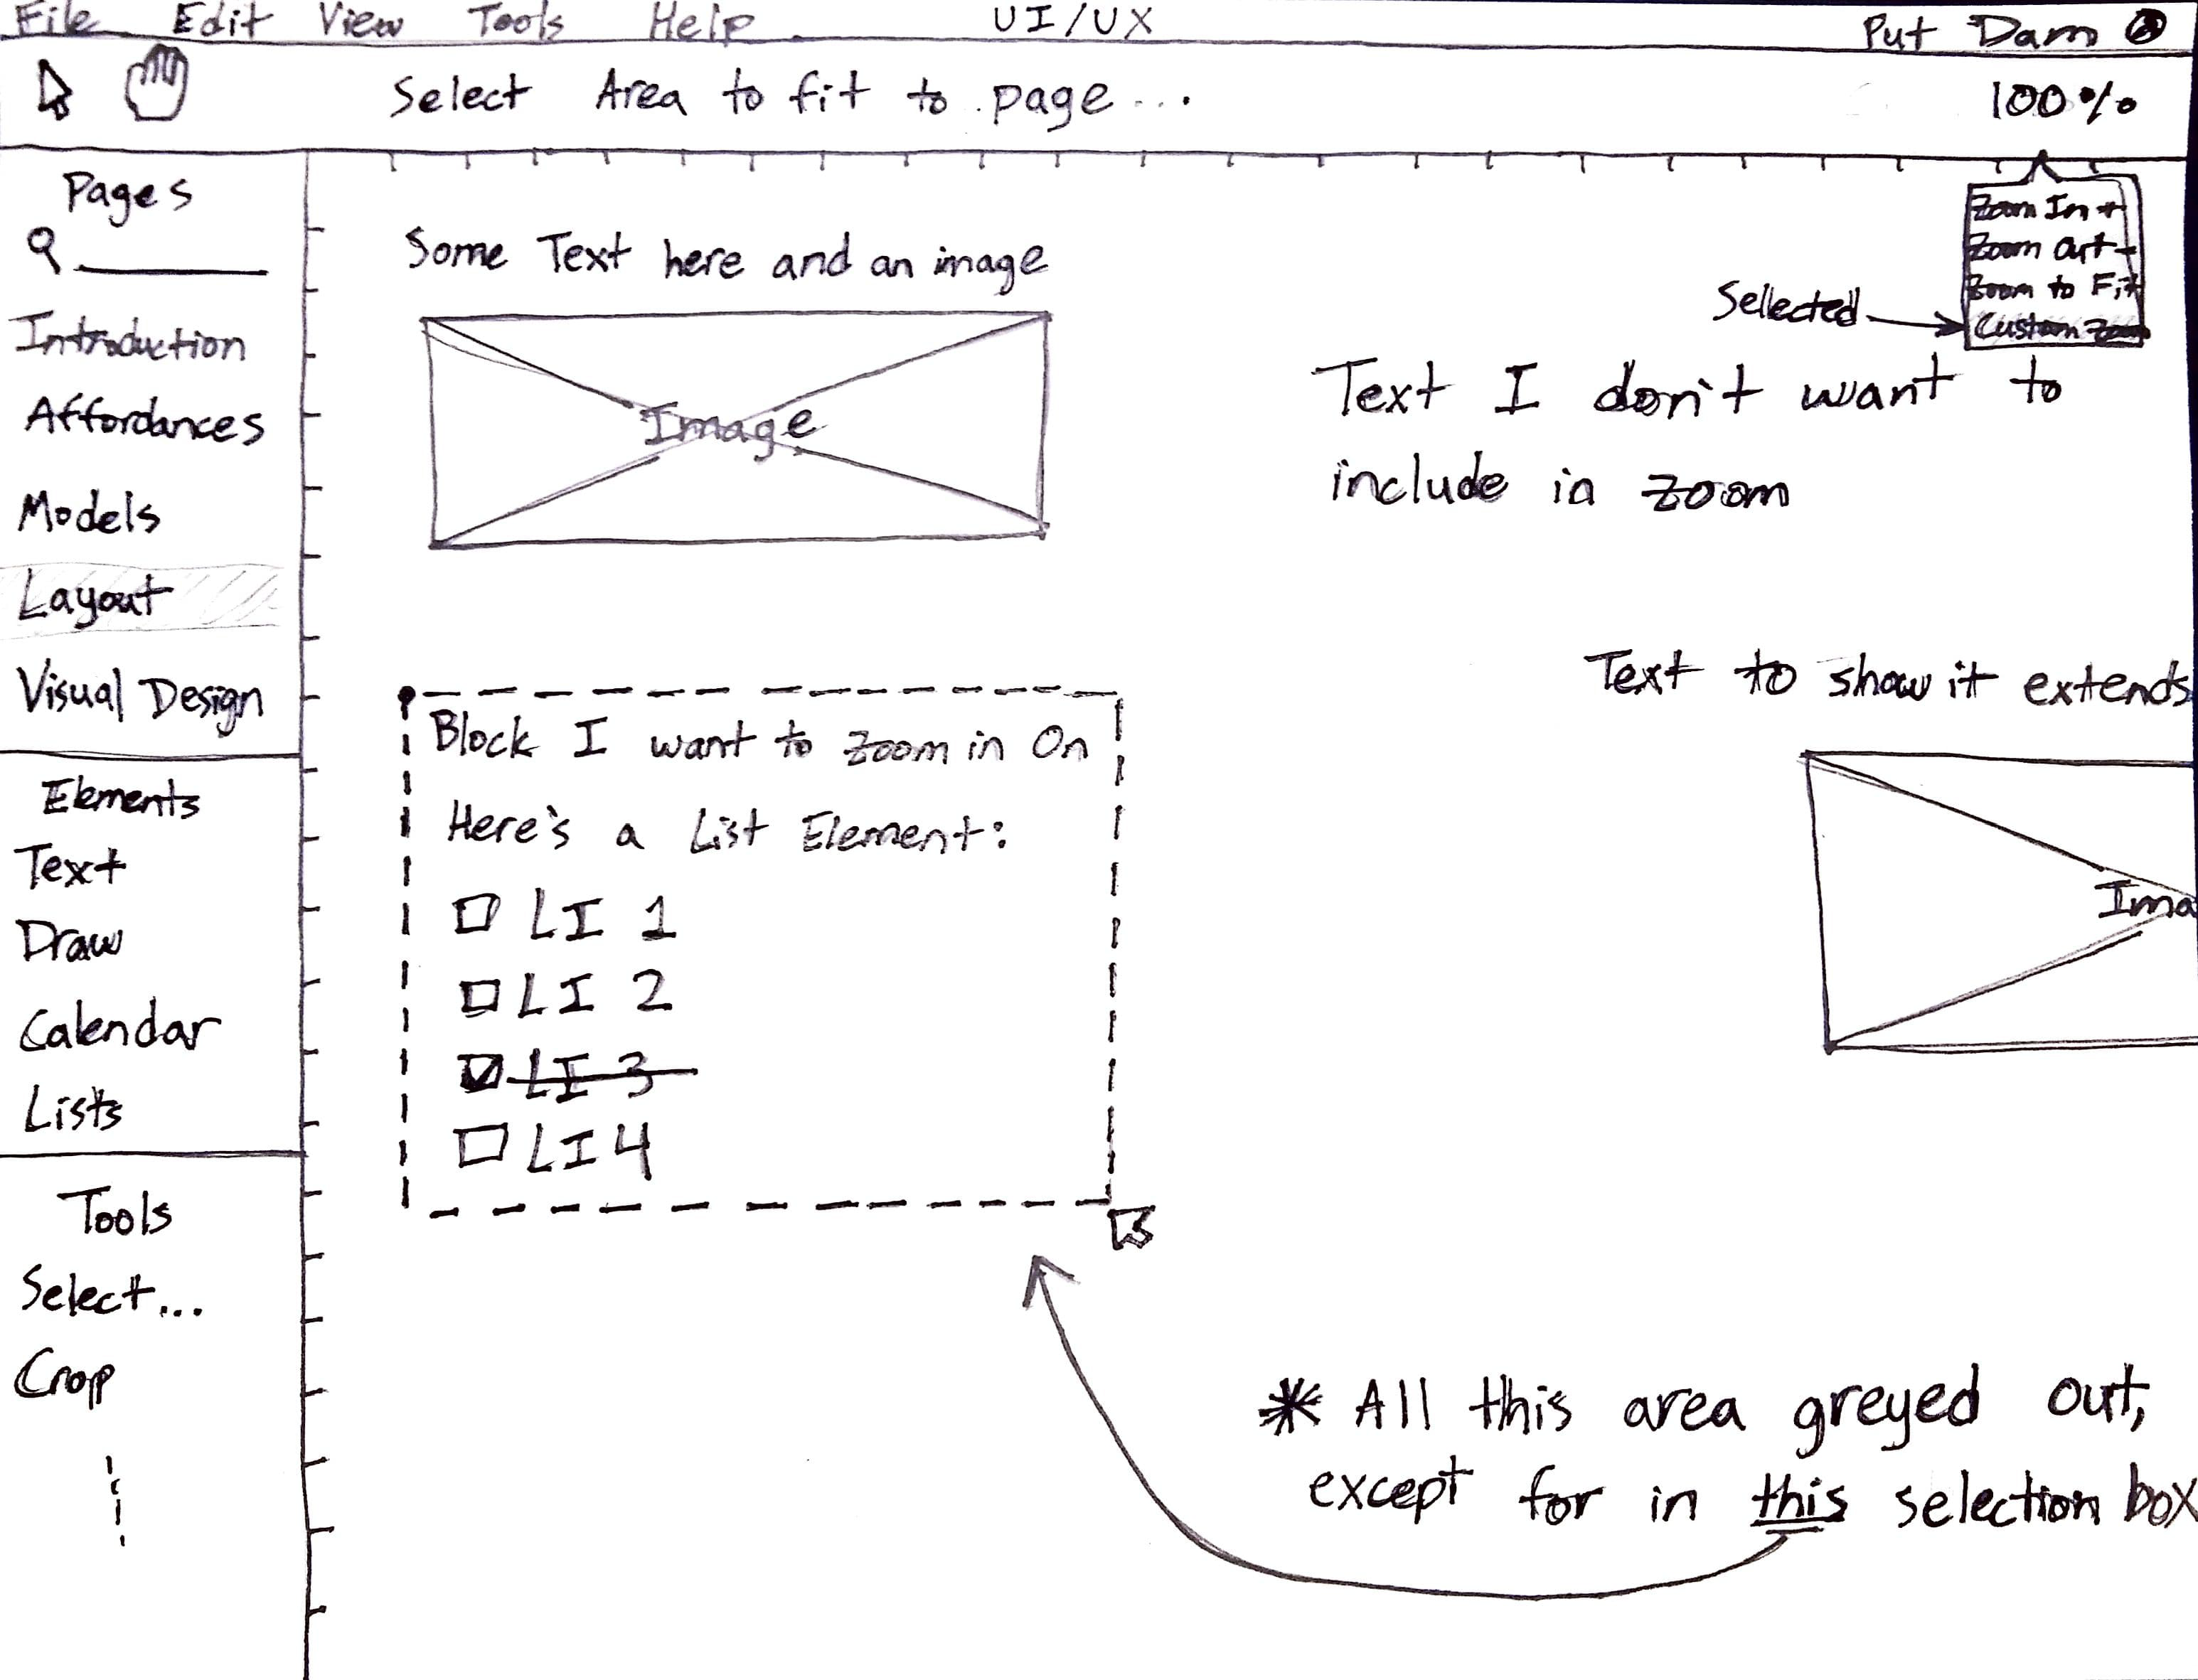 File Edit View Tools Help UI/UX Put Dam
Select Area to fit to page... 100%
Pages
Introduction
Affordances
Models
Layout
Visual Design
Elements
Text
Draw
Calendar
Lists
Tools
Select...
Crop
Some Text here and an image
Image
Zoom In +
Zoom Out -
Zoom to Fit
Custom Zoom
Selected
Text I don't want to
include in zoom
Text to show it extends
Ima
Block I want to zoom in On
Here's a List Element:
LI 1
LI 2
LI 3
LI 4
* All this area greyed out,
except for in this selection box